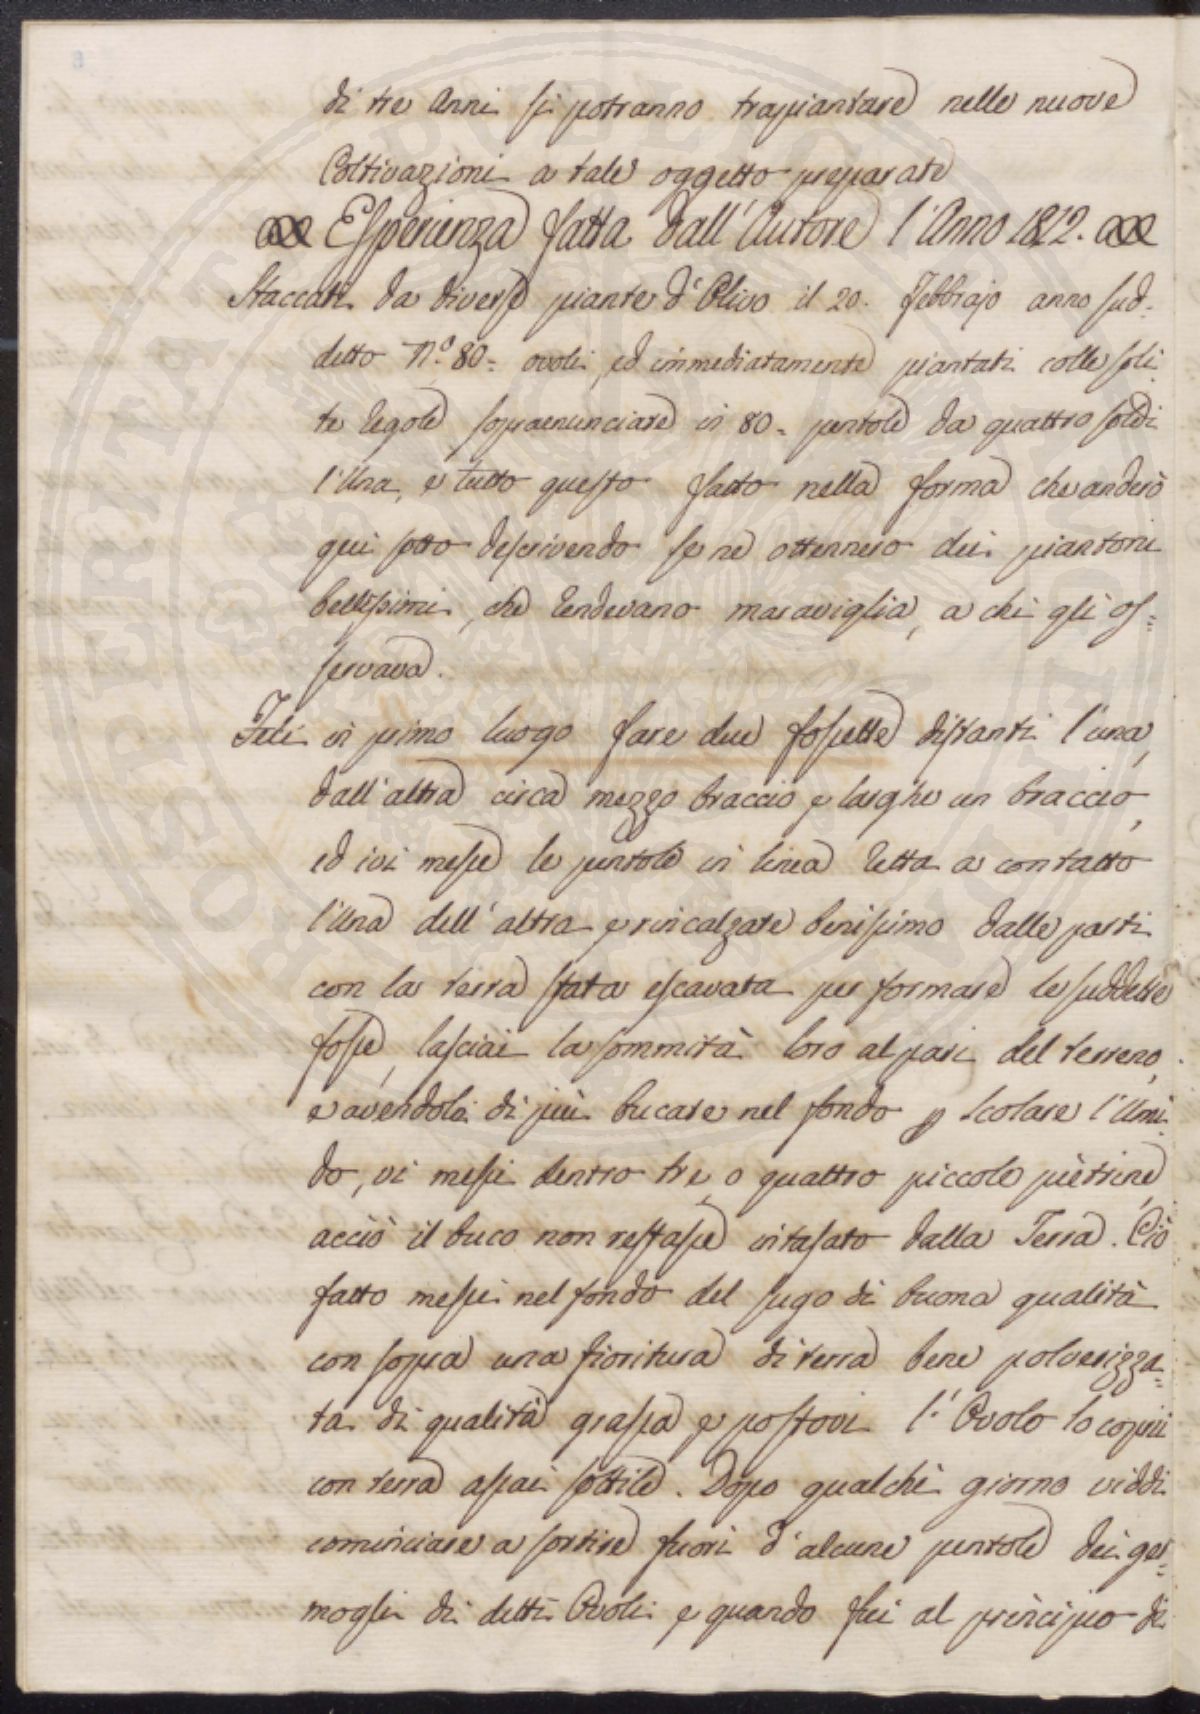 di tre Anni si potranno trapiantare nelle nuove
Coltivazioni a tale oggetto preparate
Esperienza fatta dall'Autore l'Anno 1812.
Staccati da diverse piante d'Olivo il 20. Febbrajo anno sud-
detto N.o 80= ovoli, ed immediatamente piantati colle soli
te Regole sopraenunciate in 80= pentole da quattro soldi
l'Una, e tutto questo fatto nella forma che anderò
qui sotto descrivendo se ne ottennero dei piantoni
bellissimi, che rendevano maraviglia, a chi gli os=
servava.
Feci in primo luogo fare due fossette distanti l'una,
dall'altra circa mezzo braccio e larghe un braccio,
ed ivi messe le pentole in linea retta a contatto
l'Una dell'altra e rincalzate benissimo dalle parti
con la terra stata escavata per formare le suddette
fosse, lasciai la sommità loro al pari del terreno,
e avendole di più bucate nel fondo p scolare l'Umi
do, vi messi dentro tre, o quattro piccole pietrine,
acciò il buco non restasse intasato dalla Terra. Ciò
fatto messi nel fondo del sugo di buona qualità
con sopra una fioritura di terra bene polverizza=
ta di qualità grassa e postovi l'Ovolo lo coprii
con terra assai sottile. Dopo qualche giorno viddi
cominciare a sortire fuori d'alcune pentole dei ger=
mogli di detti Ovoli e quando fui al principio di